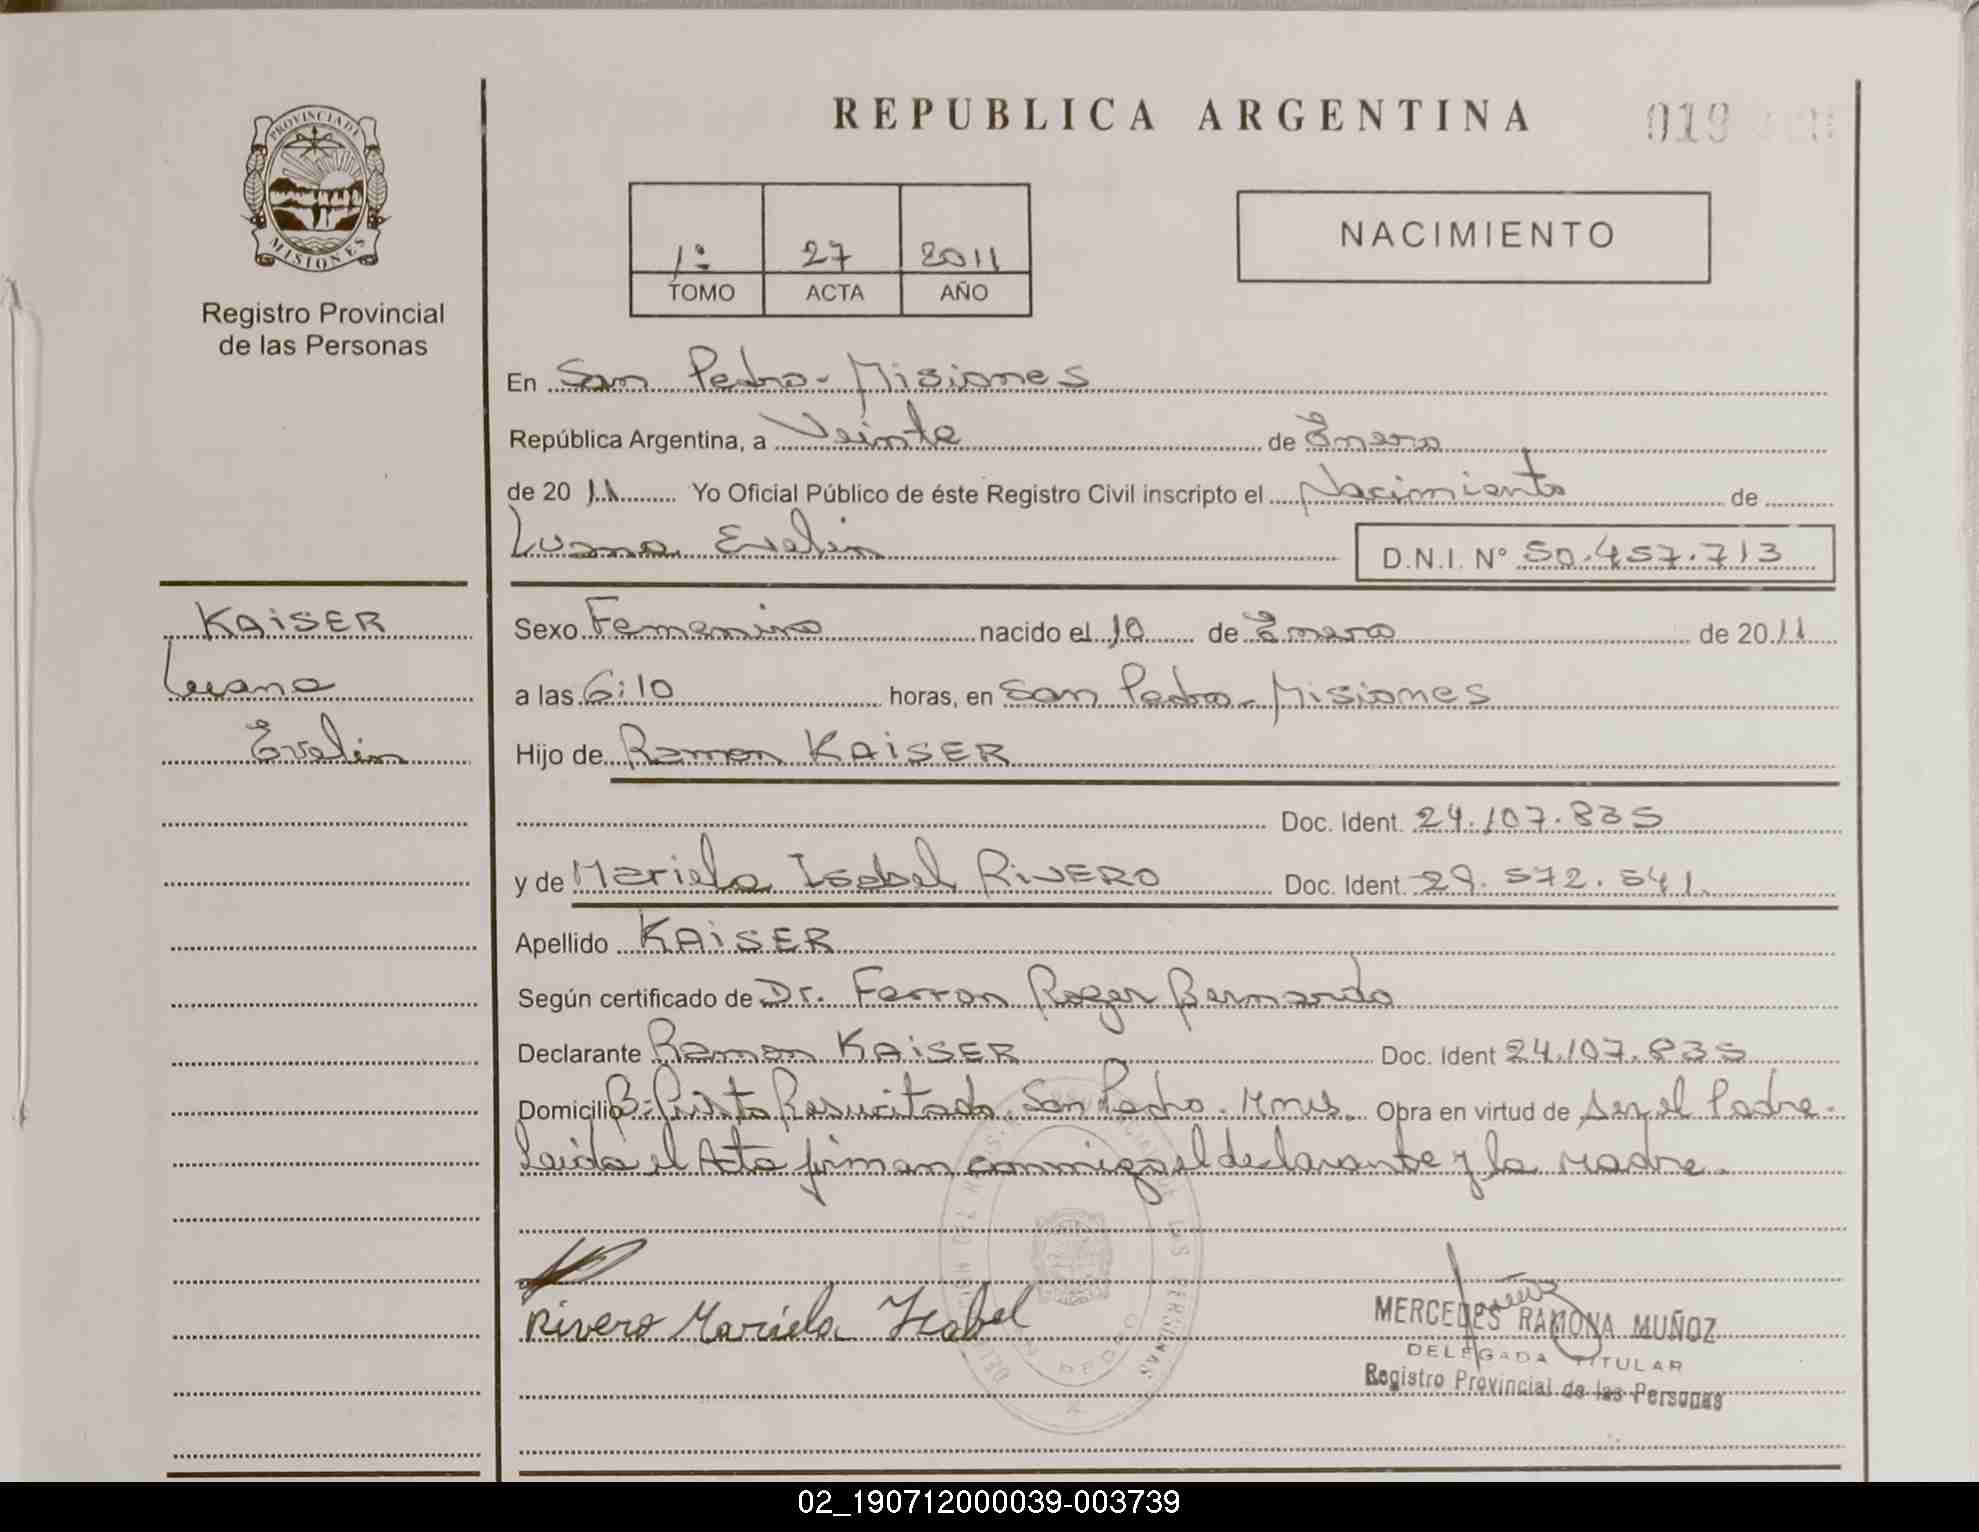 REPUBLICA ARGENTINA
019
PROVINCIA DE
MISIONES
Registro Provincial
de las Personas
1º 27 2011
TOMO ACTA AÑO
NACIMIENTO
En San Pedro - Misiones
República Argentina, a Veinte de Enero
de 20 11 Yo Oficial Público de éste Registro Civil inscripto el Nacimiento de
Luana Evelin D.N.I. Nº 50.457.713
KAiSER
Luana
Evelin
Sexo Femenino nacido el 10 de Enero de 20 11
a las 6:10 horas, en San Pedro - Misiones
Hijo de Ramon KAiSER
Doc. Ident. 24.107.835
y de Mariela Isabel RiVERO Doc. Ident. 29.572.541.
Apellido KAiSER
Según certificado de Dr. Ferron Roger Bernardo
Declarante Ramon KAiSER Doc. Ident 24.107.835
Domicilio Bº Cristo Resucitado. San Pedro. Mnes. Obra en virtud de ser el Padre.
Leida el Acta firman conmigo el declarante y la madre.
Rivero Mariela Isabel
MERCEDES RAMONA MUÑOZ
DELEGADA TITULAR
Registro Provincial de las Personas
SAN PEDRO
02_190712000039-003739